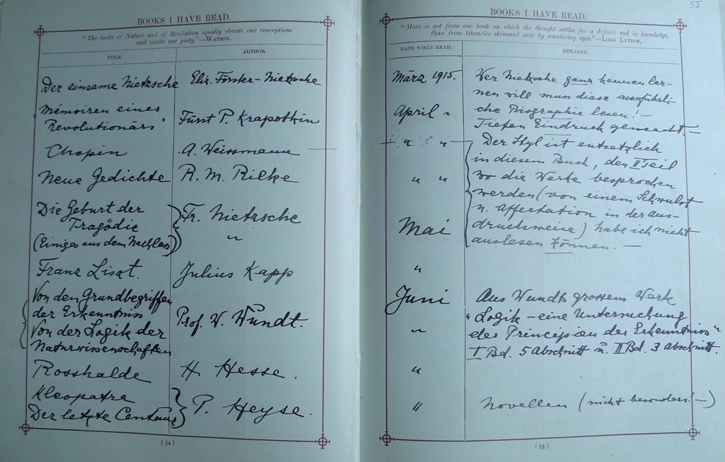 BOOKS I HAVE READ.
"The books of Nature and of Revelation equally elevate our conceptions
and incite our piety."—WATSON.
TITLE.
AUTHOR.
Der einsame Nietzsche
Elis. Förster-Nietzsche
Memoiren eines
Revolutionärs
Fürst P. Krapotkin
Chopin
A. Weissmann
Neue Gedichte
R. M. Rilke
Die Geburt der
Tragödie
(Einiges aus dem Nachlass)
Fr. Nietzsche
"
Franz Liszt.
Julius Kapp
Von den Grundbegriffen
der Erkenntniss
Von der Logik der
Naturwissenschaften
Prof. W. Wundt.
Rosshalde
H. Hesse.
Kleopatra
Der letzte Centaur
P. Heyse.
(54)
55
BOOKS I HAVE READ.
"More is got from one book on which the thought settles for a definite end in knowledge,
than from libraries skimmed over by a wandering eye."—LORD LYTTON.
DATE WHEN READ.
REMARKS.
März 1915.
Wer Nietzsche ganz kennen ler-
nen will muss diese ausführli-
che Biographie lesen! —
April "
Tiefen Eindruck gemacht. —
" "
Der Styl ist entsetzlich
in diesem Buch, den II Teil
" "
wo die Werke besprochen
werden (von einem Schwulst
u. Affectation in der aus-
Mai
druckweise) habe ich nicht
auslesen können. —
"
Juni
Aus Wundts grossem Werk
"Logik – eine Untersuchung
"
der Principien der Erkenntniss"
I Bd. 5 Abschnitt u. II Bd. 3 Abschnitt.
"
"
Novellen (nicht besonders! —)
(55)